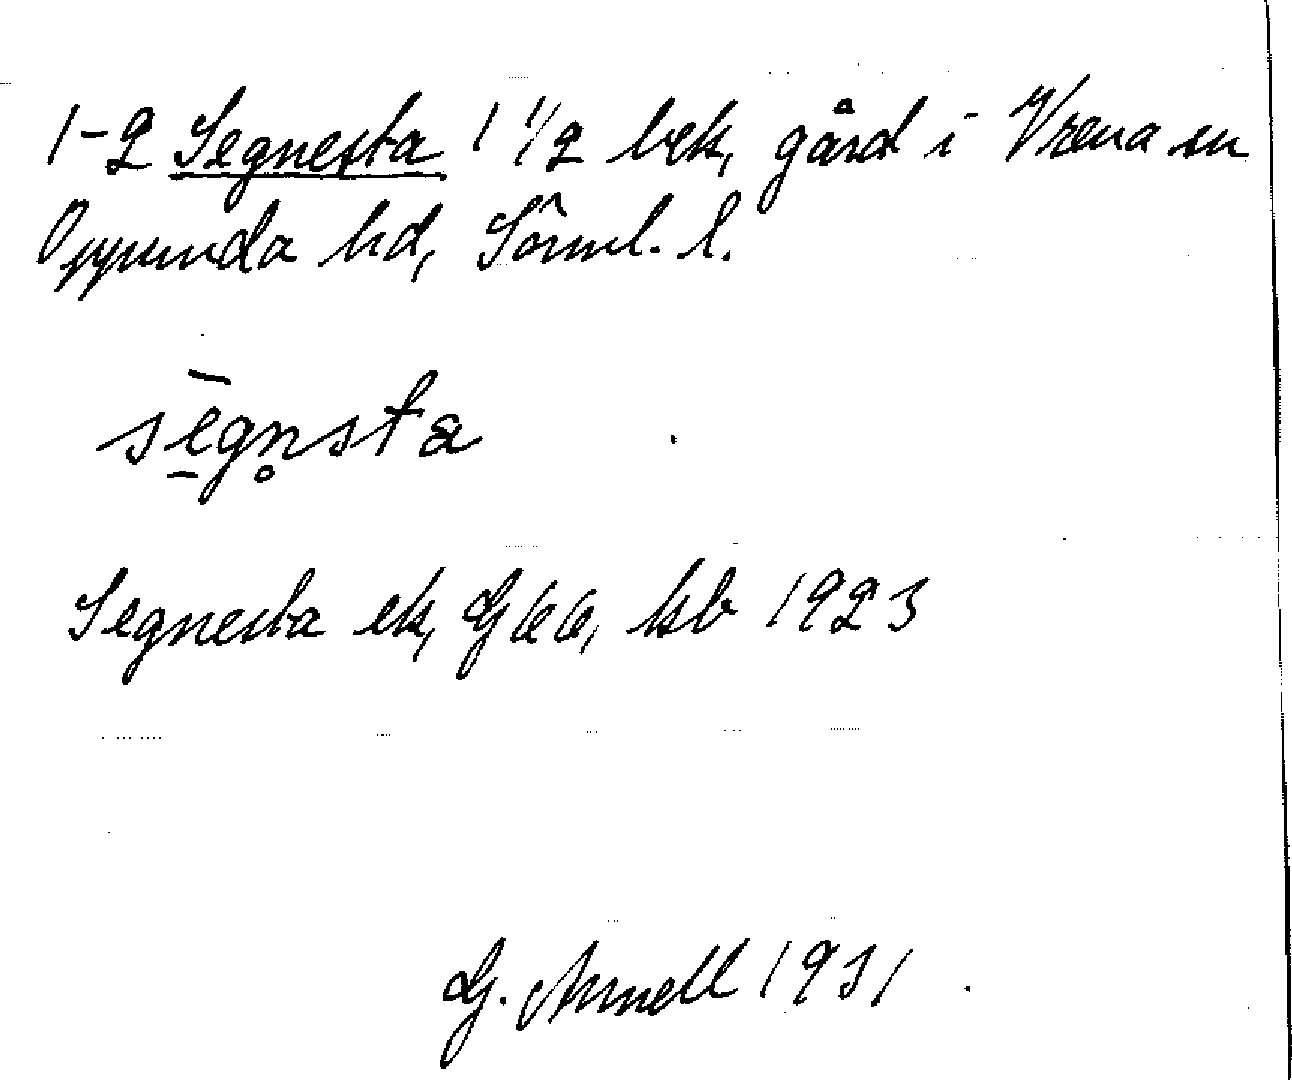 1-2 Segnesta 1 1/2 bek, gård i Vrena sn
Oppunda hd, Söml. l.
sēgn̥sta
Segnesta ek, G66, kb 1923
G. Arnell 1931